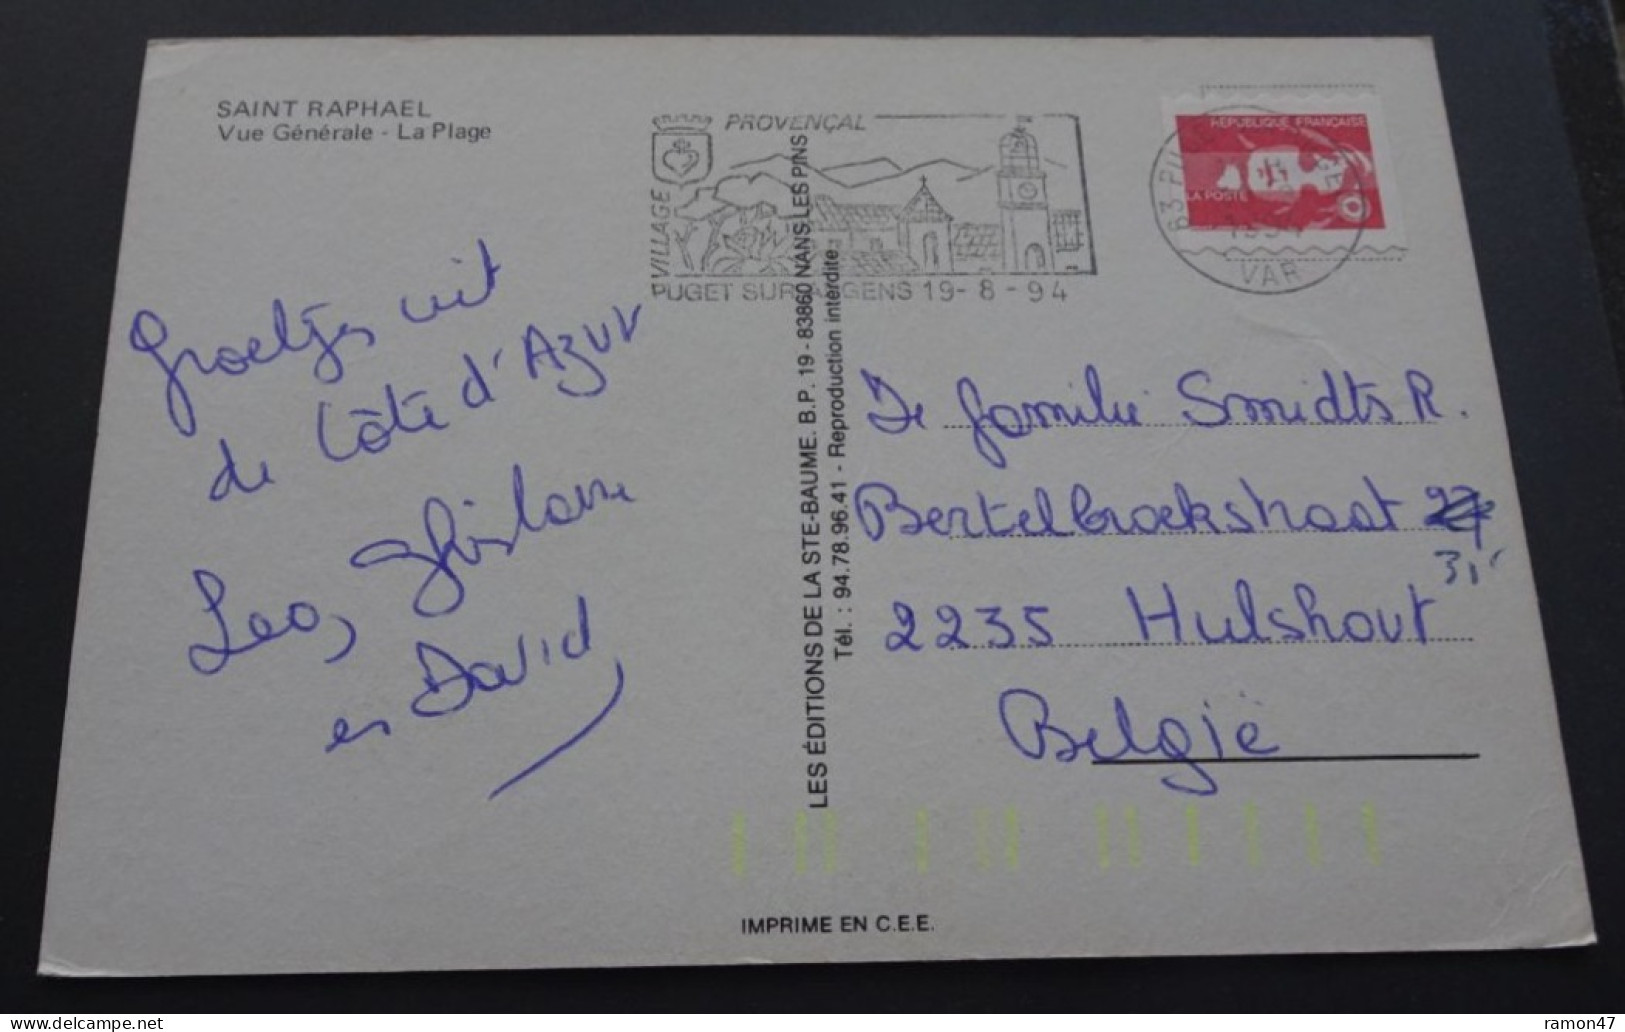 SAINT RAPHAEL
Vue Générale - La Plage
VILLAGE
PROVENÇAL
PUGET SUR ARGENS 19-8-94
RÉPUBLIQUE FRANÇAISE
LA POSTE
1994
VAR
Groetjes uit
de Côte d'Azur
Leo, Ghislaine
en David
LES ÉDITIONS DE LA STE-BAUME. B.P. 19 - 83860 NANS LES PINS
Tél. : 94.78.96.41 - Reproduction interdite
De familie Smidts R.
Bertelbroekstraat
31
2235 Hulshout
België
IMPRIME EN C.E.E.
ramon47